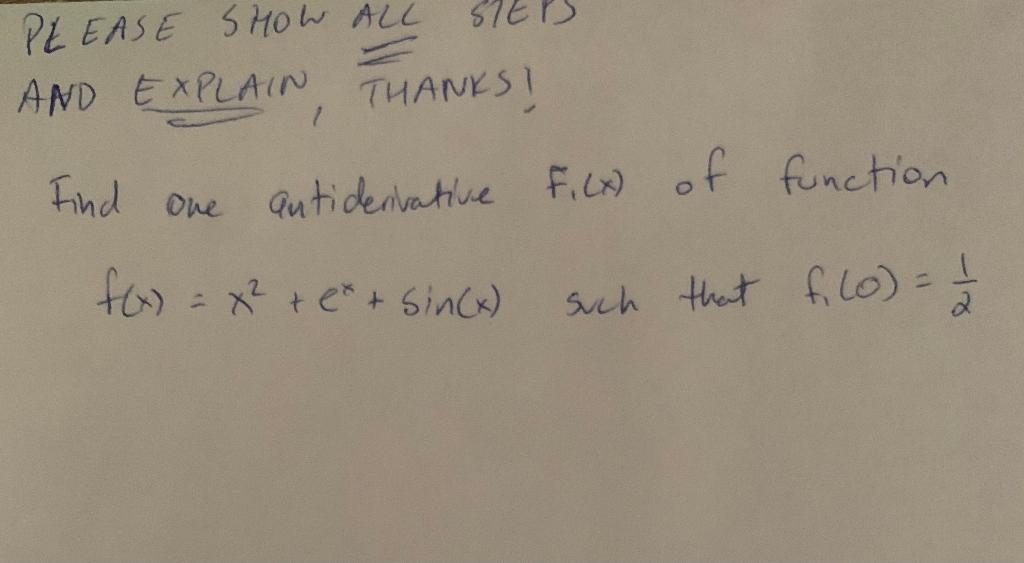 PLEASE SHOW ALL STEPS
AND EXPLAIN, THANKS!
Find one antiderivative F₁(x) of function
f(x) = x² + eˣ + sin(x) such that f₁(0) = 1/2